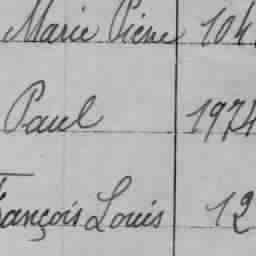 Marie Pierre 104
Paul 1974
François Louis 12